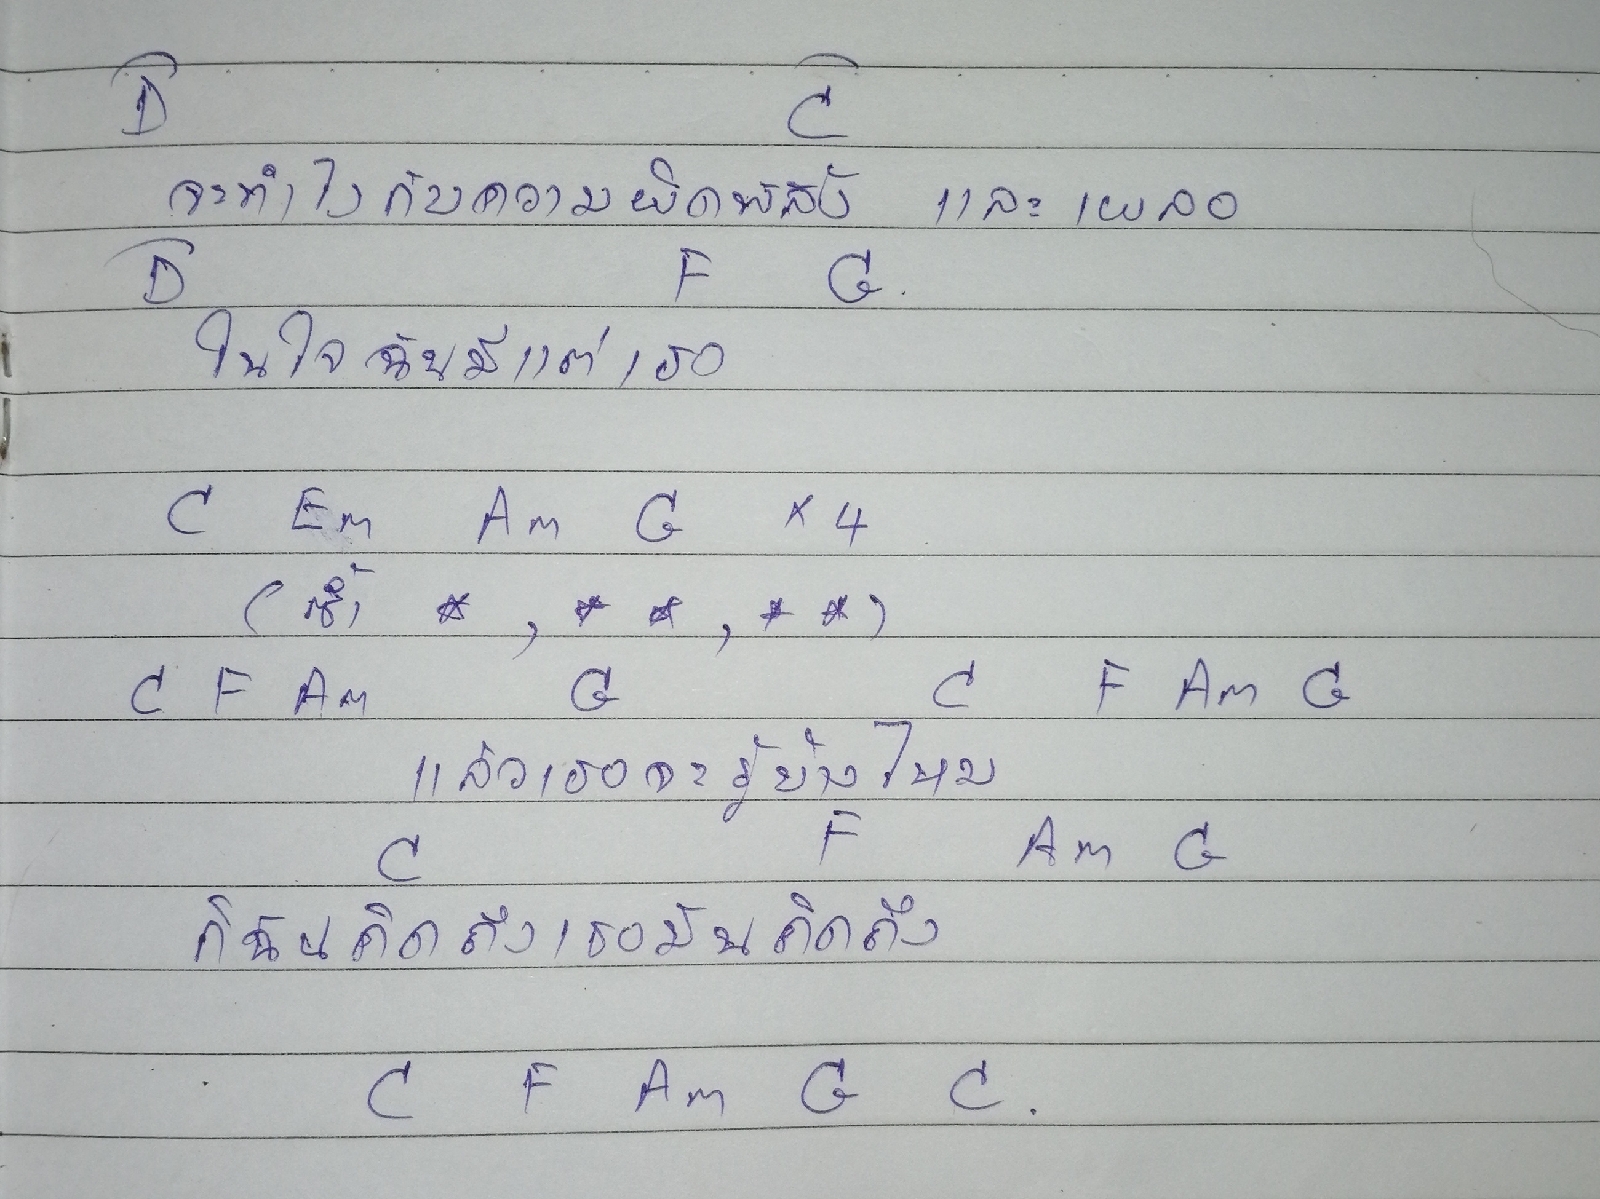 D C
จะทำไงกับความผิดพลั้ง และเผลอ
D F G.
ในใจฉันมีแต่เธอ
C Em Am G × 4
( ซ้ำ * , * * , * * )
C F Am G C F Am G
แล้วเธอจะรู้บ้างไหม
C F Am G
ก็ฉันคิดถึงเธอมันคิดถึง
C F Am G C .